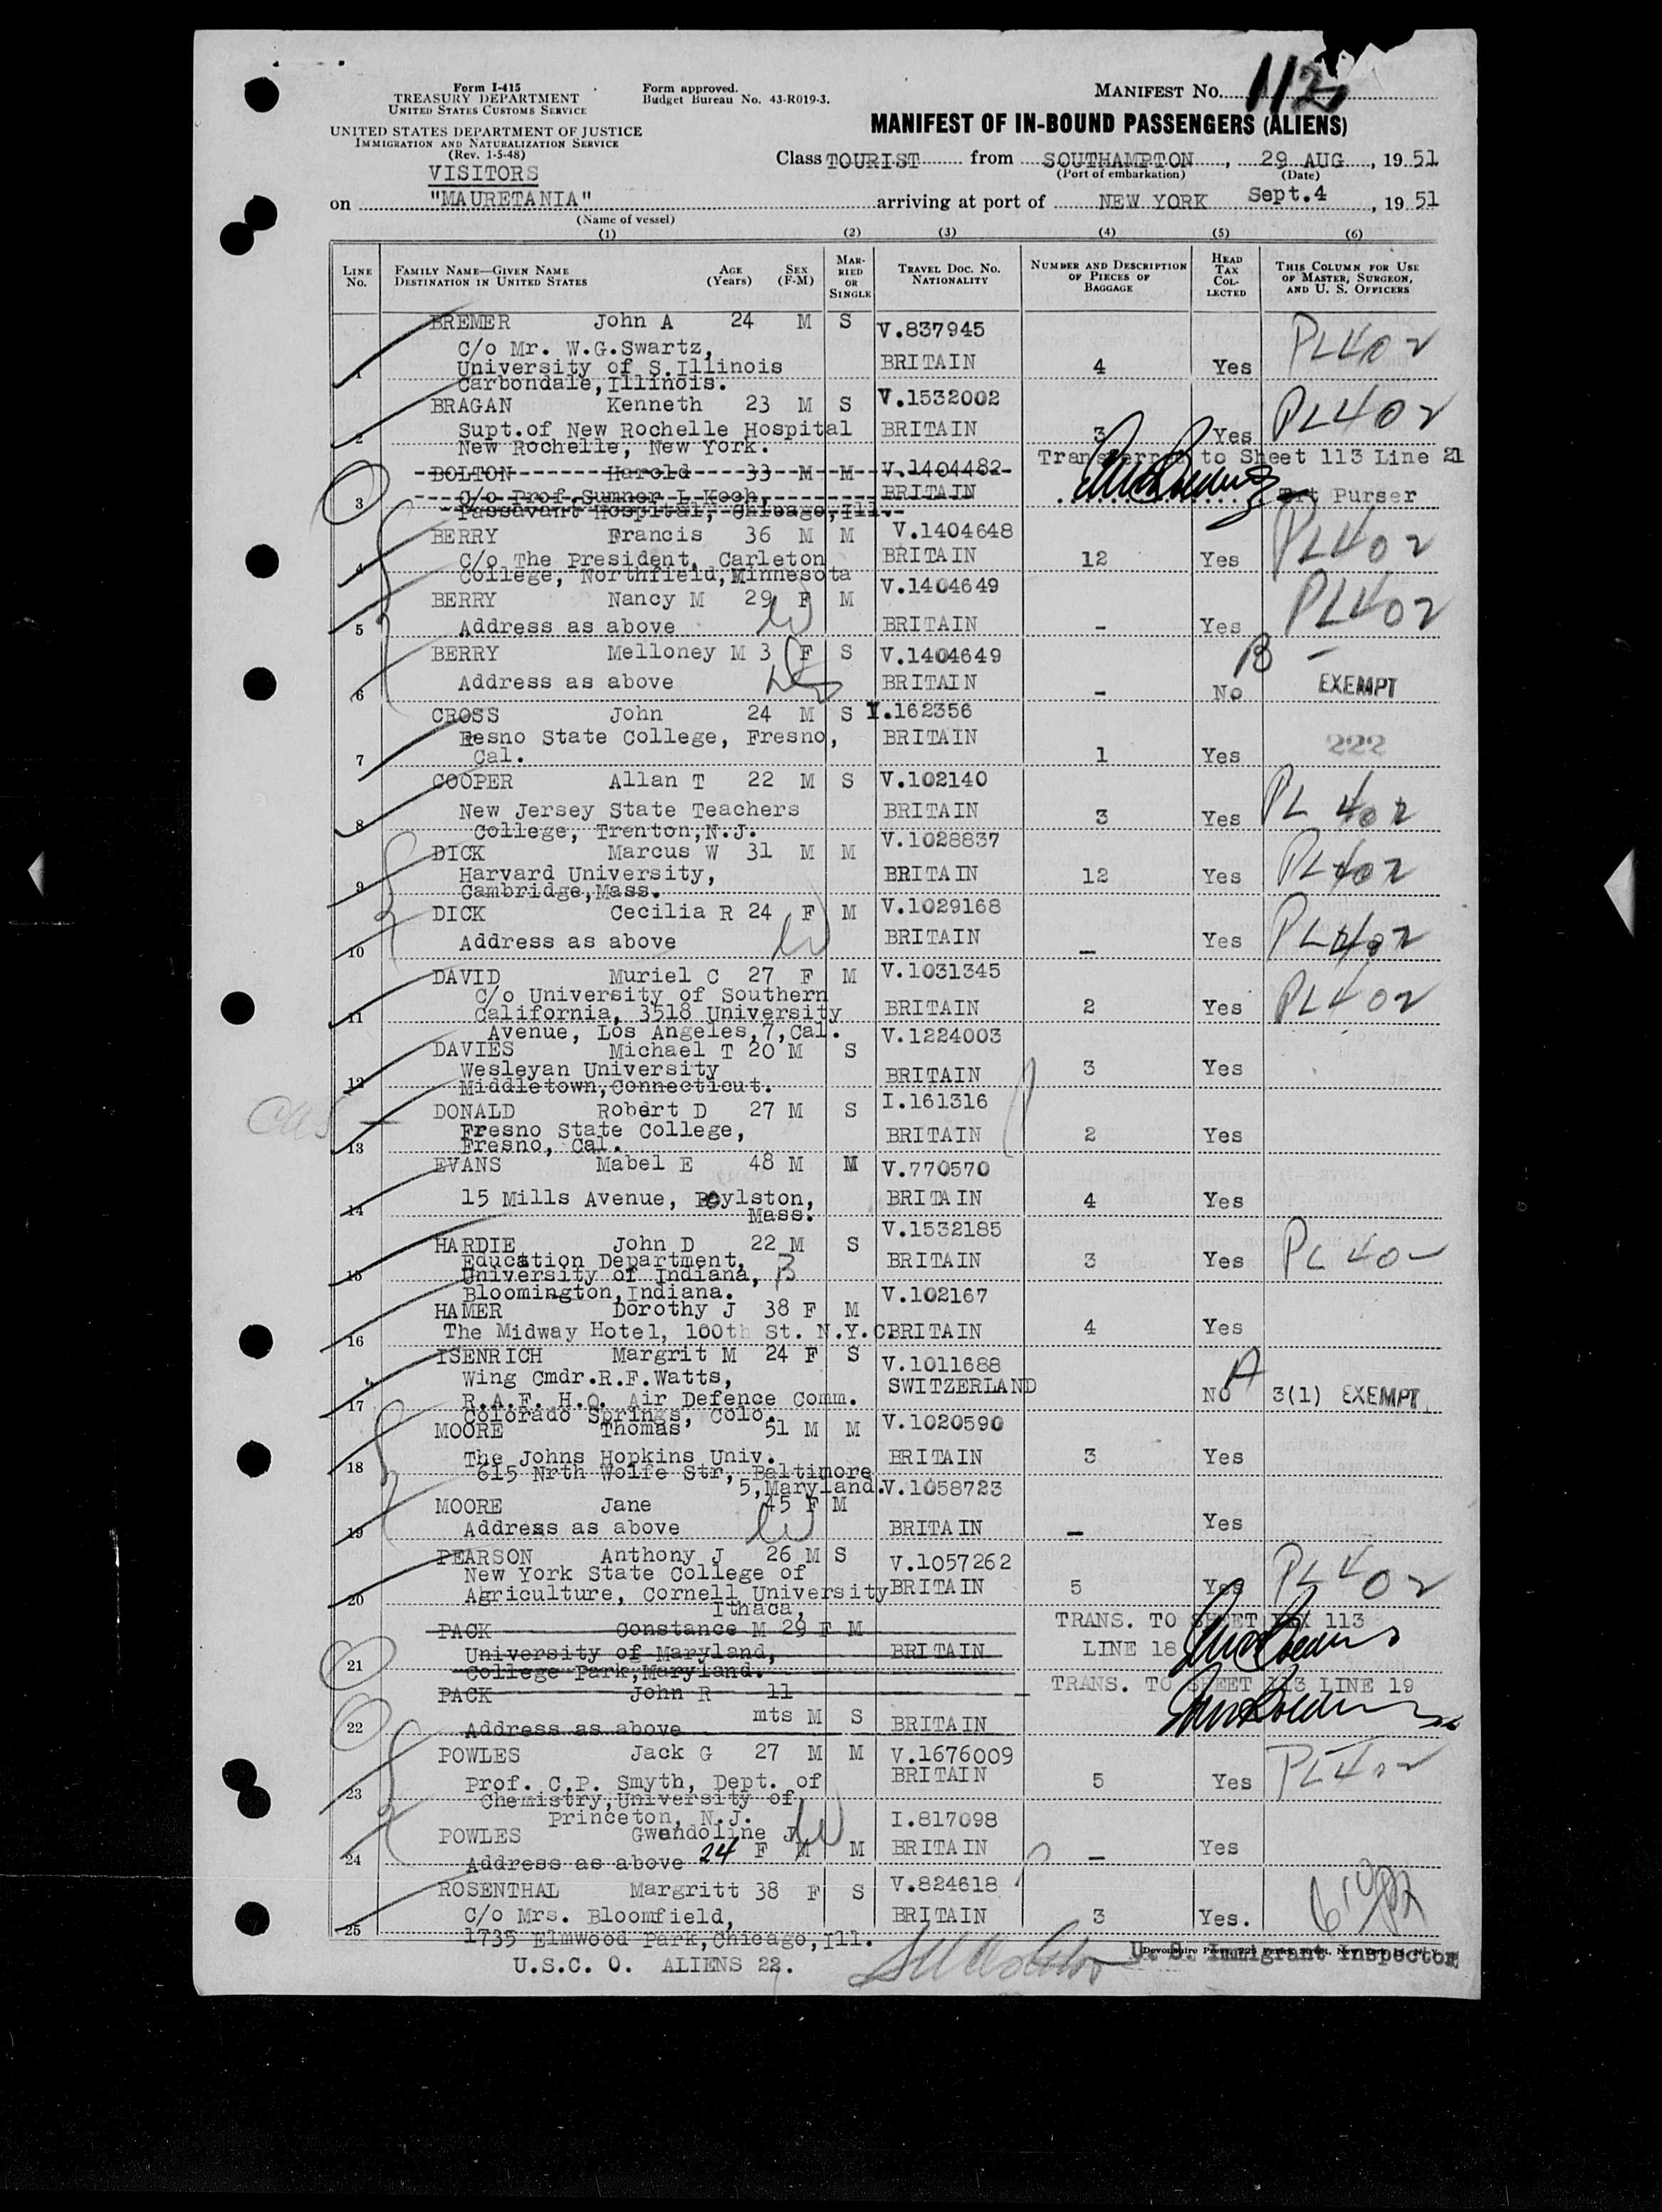 Form I-415
TREASURY DEPARTMENT
UNITED STATES CUSTOMS SERVICE
UNITED STATES DEPARTMENT OF JUSTICE
IMMIGRATION AND NATURALIZATION SERVICE
(Rev. 1-5-48)
Form approved.
Budget Bureau No. 43-R019-3.
MANIFEST No. 112
MANIFEST OF IN-BOUND PASSENGERS (ALIENS)
VISITORS
Class TOURIST from SOUTHAMPTON, 29 AUG, 1951
(Port of embarkation) (Date)
on "MAURETANIA" arriving at port of NEW YORK Sept.4, 1951
(Name of vessel)
(1) (2) (3) (4) (5) (6)
LINE No. FAMILY NAME—GIVEN NAME DESTINATION IN UNITED STATES AGE (Years) SEX (F-M) MARRIED OR SINGLE TRAVEL DOC. NO. NATIONALITY NUMBER AND DESCRIPTION OF PIECES OF BAGGAGE HEAD TAX COLLECTED THIS COLUMN FOR USE OF MASTER, SURGEON, AND U. S. OFFICERS
BREMER John A 24 M S V.837945 PL402
C/o Mr. W.G.Swartz,
1 University of S.Illinois BRITAIN 4 Yes
Carbondale,Illinois.
BRAGAN Kenneth 23 M S V.1532002 PL402
2 Supt.of New Rochelle Hospital BRITAIN 3 Yes
New Rochelle, New York.
Transferred to Sheet 113 Line 21
BOLTON Harold 33 M M V.1404482
3 C/o Prof.Sumner L Koch, BRITAIN Purser
Passavant Hospital, Chicago,Ill.
BERRY Francis 36 M M V.1404648 PL402
4 C/o The President, Carleton BRITAIN 12 Yes
College, Northfield,Minnesota
BERRY Nancy M 29 F M V.1404649 PL402
5 Address as above W BRITAIN - Yes
BERRY Melloney M 3 F S V.1404649 B -
6 Address as above BRITAIN - No EXEMPT
CROSS John 24 M S I.162356
Fesno State College, Fresno, BRITAIN 222
7 Cal. 1 Yes
COOPER Allan T 22 M S V.102140 PL 402
8 New Jersey State Teachers BRITAIN 3 Yes
College, Trenton,N.J.
DICK Marcus W 31 M M V.1028837 PL402
9 Harvard University, BRITAIN 12 Yes
Cambridge,Mass.
DICK Cecilia R 24 F M V.1029168 PL402
10 Address as above W BRITAIN - Yes
DAVID Muriel C 27 F M V.1031345 PL402
C/o University of Southern
11 California, 3518 University BRITAIN 2 Yes
Avenue, Los Angeles,7,Cal.
DAVIES Michael T 20 M S V.1224003
Wesleyan University BRITAIN 3 Yes
12 Middletown,Connecticut.
DONALD Robert D 27 M S I.161316
Fresno State College, BRITAIN 2 Yes
13 Fresno, Cal.
EVANS Mabel E 48 M M V.770570
14 15 Mills Avenue, Boylston, BRITAIN 4 Yes
Mass.
HARDIE John D 22 M S V.1532185 PL 40
Education Department, BRITAIN 3 Yes
15 University of Indiana, B
Bloomington,Indiana.
HAMER Dorothy J 38 F M V.102167
16 The Midway Hotel, 100th St. N.Y.C. BRITAIN 4 Yes
ISENRICH Margrit M 24 F S V.1011688 A
Wing Cmdr.R.F.Watts, SWITZERLAND
17 R.A.F. H.Q. Air Defence Comm. NO 3(1) EXEMPT
Colorado Springs, Colo.
MOORE Thomas 51 M M V.1020590
18 The Johns Hopkins Univ. BRITAIN 3 Yes
615 Nrth Wolfe Str, Baltimore
5,Maryland.
MOORE Jane 45 F M V.1058723
19 Address as above W BRITAIN - Yes
PEARSON Anthony J 26 M S V.1057262 PL402
New York State College of
20 Agriculture, Cornell University BRITAIN 5 Yes
Ithaca,
PACK Constance M 29 F M TRANS. TO SHEET 113
21 University of Maryland, BRITAIN LINE 18
College Park,Maryland.
PACK John R 11 TRANS. TO SHEET 113 LINE 19
mts M S
22 Address as above BRITAIN
POWLES Jack G 27 M M V.1676009 PL402
Prof. C.P. Smyth, Dept. of BRITAIN 5 Yes
23 Chemistry,University of
Princeton, N.J.
POWLES Gwendoline J W I.817098
24 Address as above 24 F M BRITAIN - Yes
ROSENTHAL Margritt 38 F S V.824618
C/o Mrs. Bloomfield, BRITAIN 3 Yes.
25 1735 Elmwood Park,Chicago,Ill.
U.S.C. O. ALIENS 22.
U. S. Immigrant Inspector